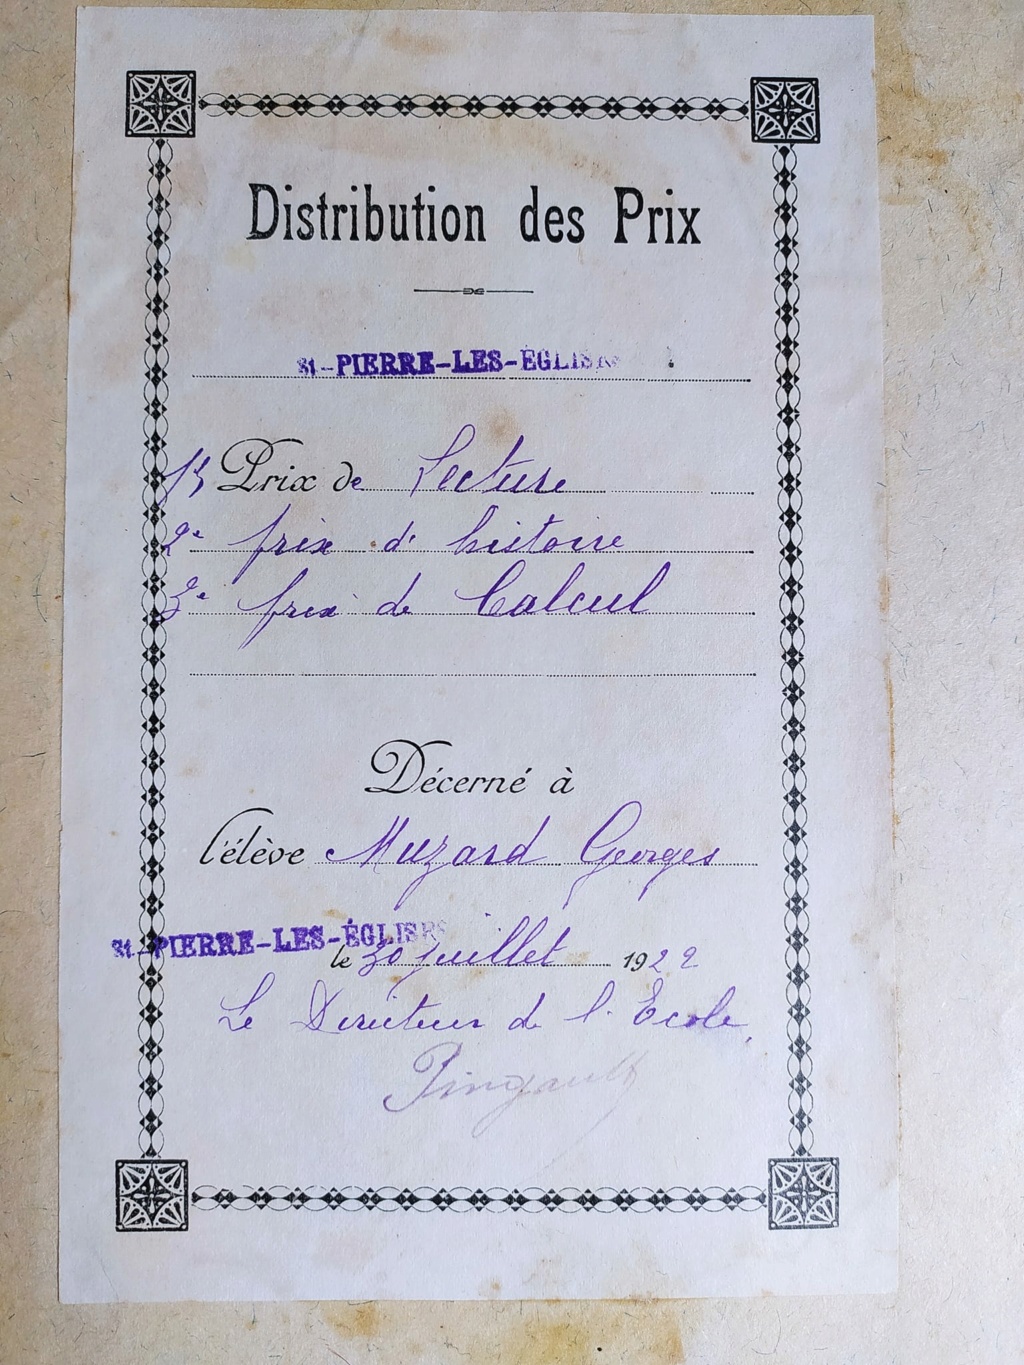 Distribution des Prix
St-PIERRE-LES-ÉGLISES
1er Prix de Lecture
2e prix d'histoire
3e prix de Calcul
Décerné à
l'élève Muzard Georges
St-PIERRE-LES-ÉGLISES
le 30 juillet 1922
Le Directeur de l'Ecole,
Pingault